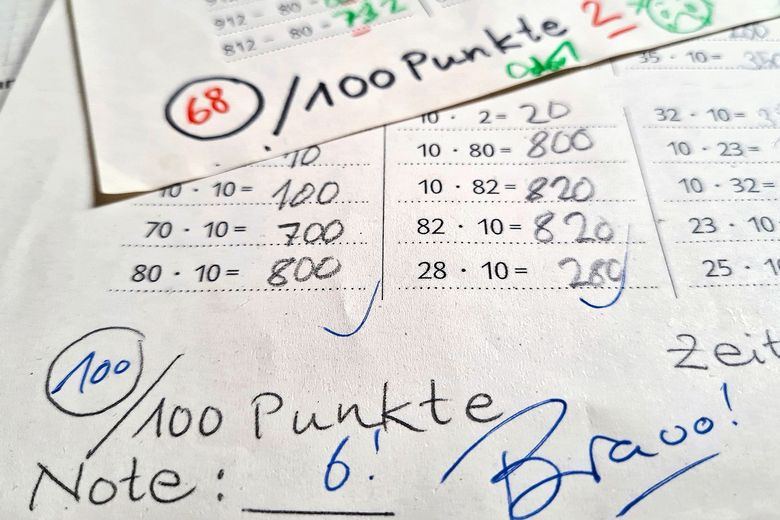 912 - 80 =
812 - 80 = 732
68 /100 Punkte 2
35 · 10=
10
10 · 10= 100
70 · 10= 700
80 · 10= 800
10 · 2= 20
10 · 80= 800
10 · 82= 820
82 · 10= 820
28 · 10= 280
32 · 10=
10 · 23=
10 · 32=
23 · 10
25 ·
Zeit
100 /100 Punkte
Note: 6! Bravo!